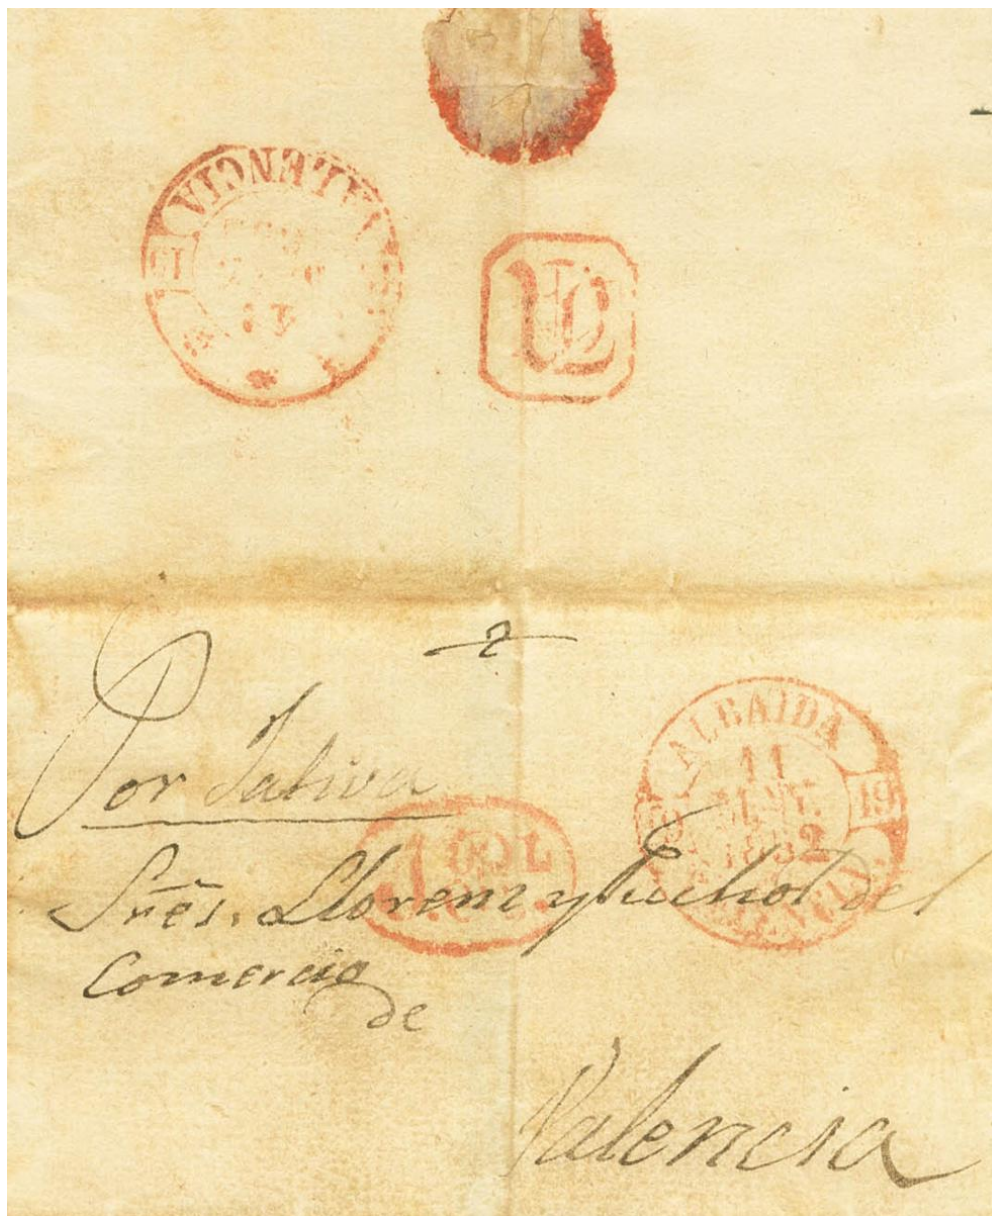 VALENCIA
2
Por Jativa
ALBAIDA
11
19
1832
VALENCIA.
Sres. Llorens y Fuchol del
Comercio
de
Valencia